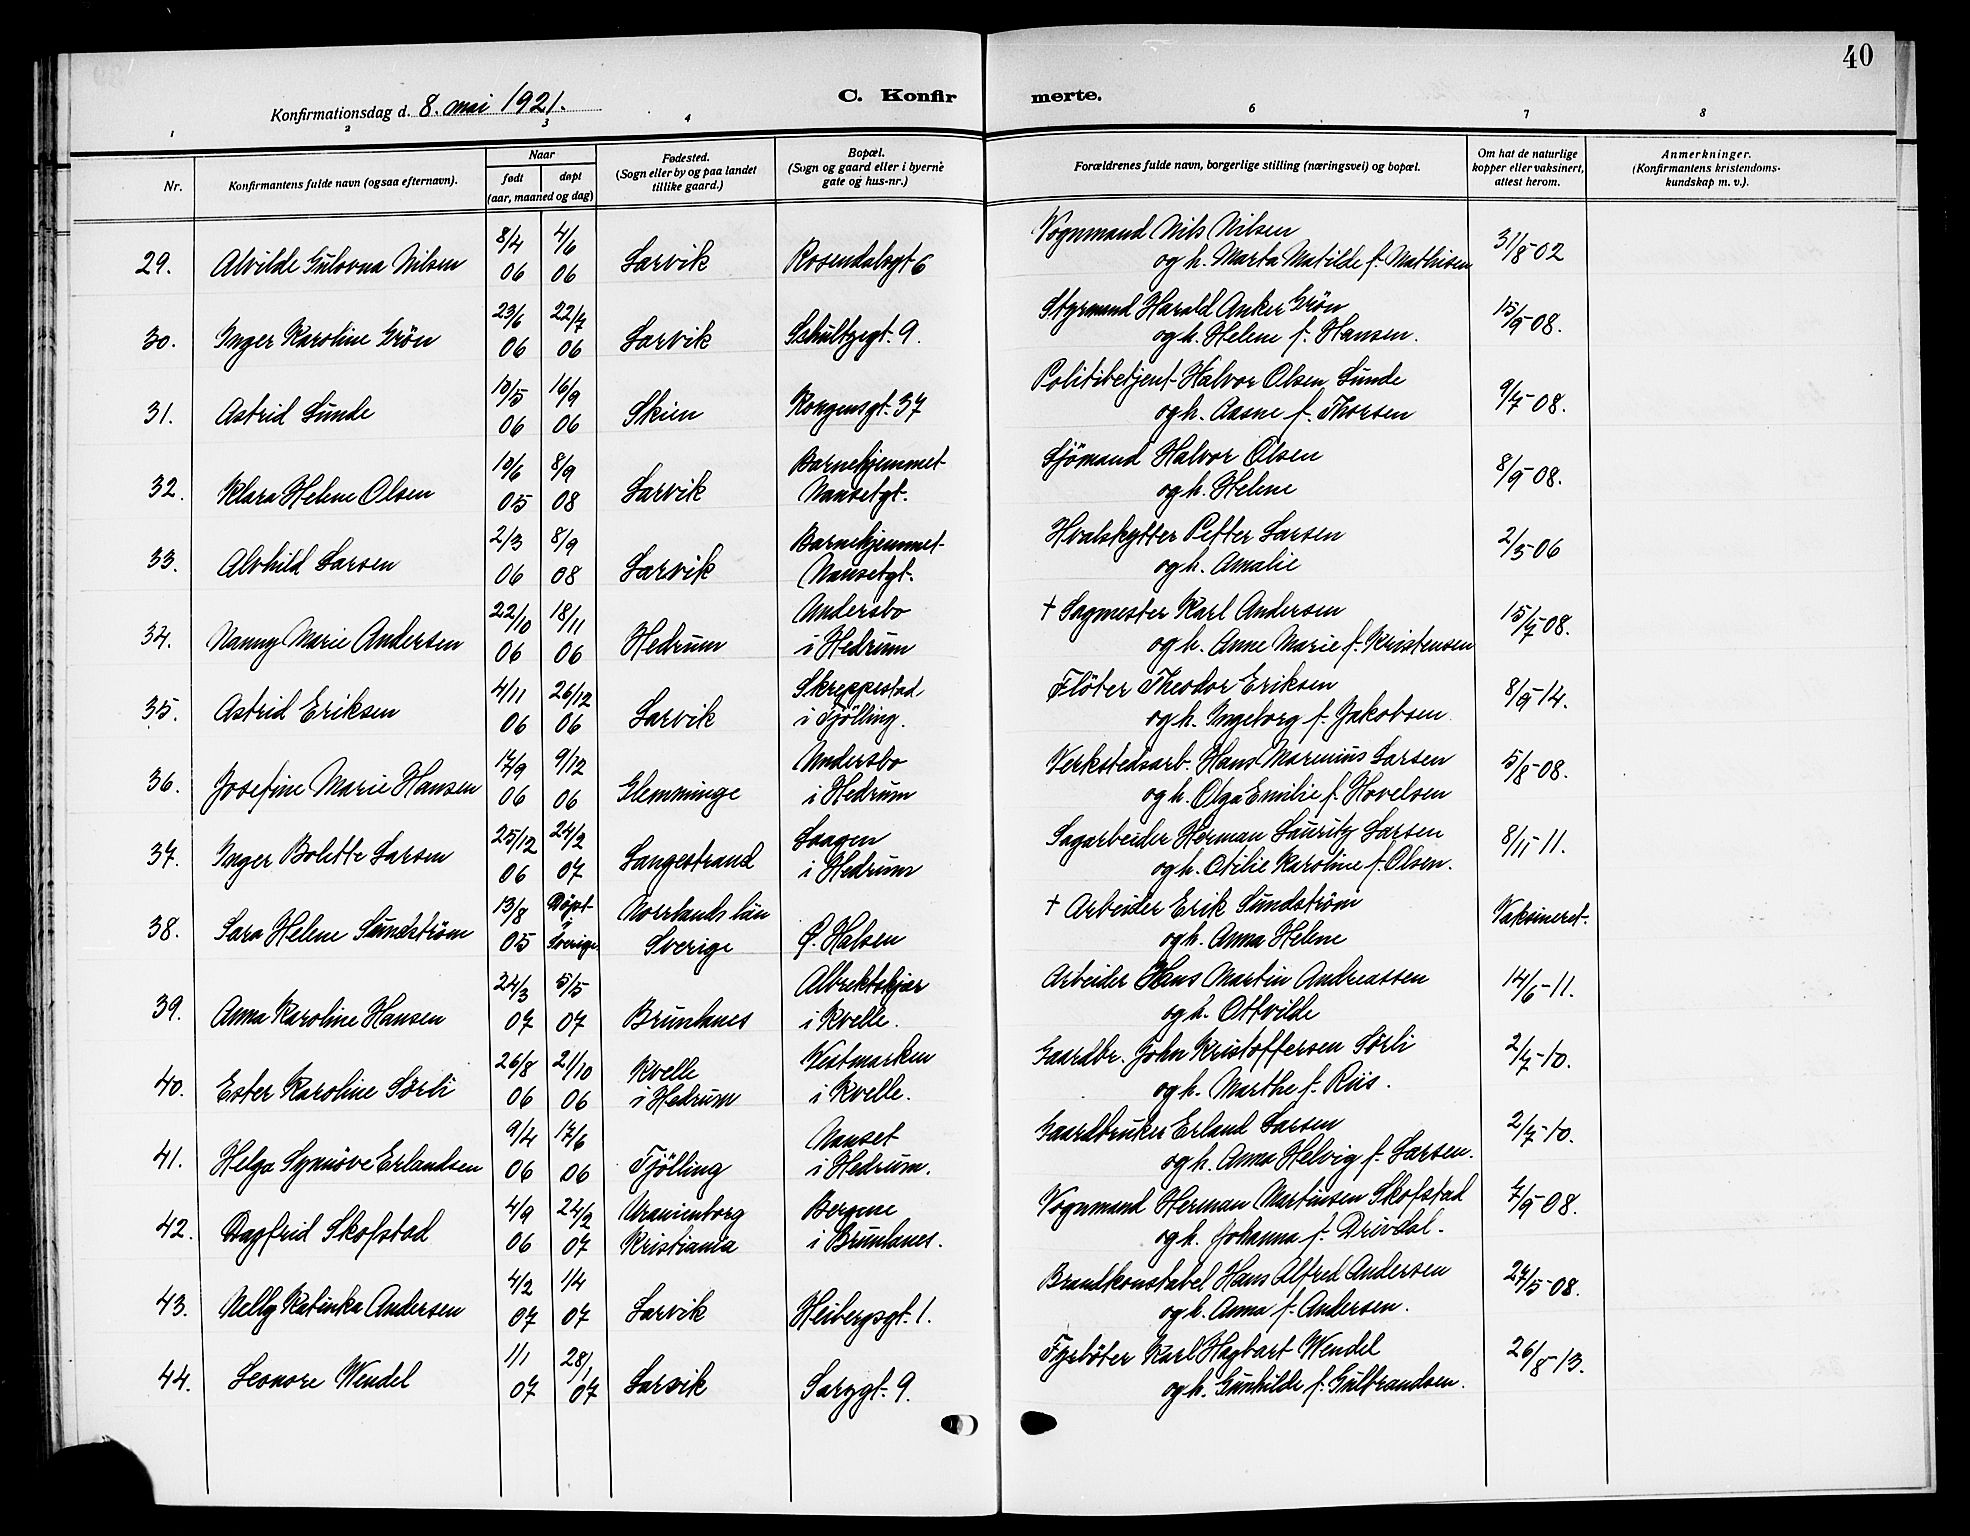 40
Konfirmationsdag d. 8. mai 1921.
C. Konfirmerte.
1 2 3 4 6 7 8
Nr.
Konfirmantens fulde navn (ogsaa efternavn).
Naar
født døpt
(aar, maaned og dag)
Fødested.
(Sogn eller by og paa landet
tillike gaard.)
Bopæl.
(Sogn og gaard eller i byerne
gate og hus-nr.)
Forældrenes fulde navn, borgerlige stilling (næringsvei) og bopæl.
Om hat de naturlige
kopper eller vaksinert,
attest herom.
Anmerkninger.
(Konfirmantens kristendoms-
kundskap m. v.).
8/4 4/6 Vognmand Nils Nilsen
29. Alvilde Gulovna Nilsen 06 06 Larvik Rosendalsgt 6 og h. Marta Matilde f. Mathisen 31/8-02
23/6 22/7 Styrmand Harald Anker Grön
30. Inger Karoline Grön 06 06 Larvik Schultzegt. 9. og h. Helene f. Hansen. 15/9-08.
10/5 16/9 Politibetjent Halvor Olsen Lunde
31. Astrid Lunde 06 06 Skien Kongensgt. 37 og h. Aasne f. Thorsen 9/7-08.
10/6 8/9 Barnehjemmet Sjömand Halvor Olsen
32. Klara Helene Olsen 05 08 Larvik Nansetgt. og h. Helene 8/9-08.
2/3 8/9 Barnehjemmet Hvalskytter Petter Larsen
33. Alvhild Larsen 06 08 Larvik Nansetgt. og h. Amalie 2/5-06
22/10 18/11 Andersbo † Sagmester Karl Andersen
34. Nanny Marie Andersen 06 06 Hedrum i Hedrum og h. Anne Marie f. Kristensen 15/7-08.
4/11 26/12 Skreppestad Flöter Theodor Eriksen
35. Astrid Eriksen 06 06 Larvik i Tjölling. og h. Ingeborg f. Jakobsen 8/9-14.
17/9 9/12 Andersbo Verkstedsarb. Hans Marinius Larsen
36. Josefine Marie Hansen 06 06 Glemminge i Hedrum og h. Olga Emilie f. Hovelsen 5/8-08.
25/12 24/2 Laagen Sagarbeider Herman Lauritz Larsen
37. Inger Bolette Larsen 06 07 Langestrand i Hedrum og h. Otilie Karoline f. Olsen. 8/11-11.
13/8 Döpt i Norrlands län † Arbeider Erik Sundström
38. Sara Helene Sundström 05 Sverige Sverige Ø. Halsen og h. Anna Helene Vaksineret.
24/3 5/5 Albrektskjær Arbeider Hans Martin Andreassen
39. Anna Karoline Hansen 07 07 Brunlanes i Kvelle. og h. Ottvilde 14/6-11.
26/8 21/10 Kvelle Vestmarken Gaardbr. John Kristoffersen Sörli
40. Ester Karoline Sörli 06 06 i Hedrum i Kvelle. og h. Marthe f. Riis. 2/7-10.
9/4 17/6 Nanset Gaardbruker Erland Larsen
41. Helga Synnöve Erlandsen 06 06 Tjölling i Hedrum. og h. Anna Helvig f. Larsen. 2/7-10.
4/9 24/2 Uranienborg Bergene Vognmand Herman Martinsen Skofstad
42. Dagfrid Skofstad 06 07 Kristiania i Brunlanes. og h. Johanna f. Drivdal. 7/9-08.
4/2 1/4 Brandkonstabel Hans Alfred Andersen
43. Nelly Katinka Andersen 07 07 Larvik Heibergsgt. 1. og h. Anna f. Andersen. 27/5-08.
1/1 28/1 Fyrböter Karl Hagbart Wendel
44. Leonore Wendel 07 07 Larvik Sarygt. 9. og h. Gunhilde f. Gulbrandsen. 26/8-13.